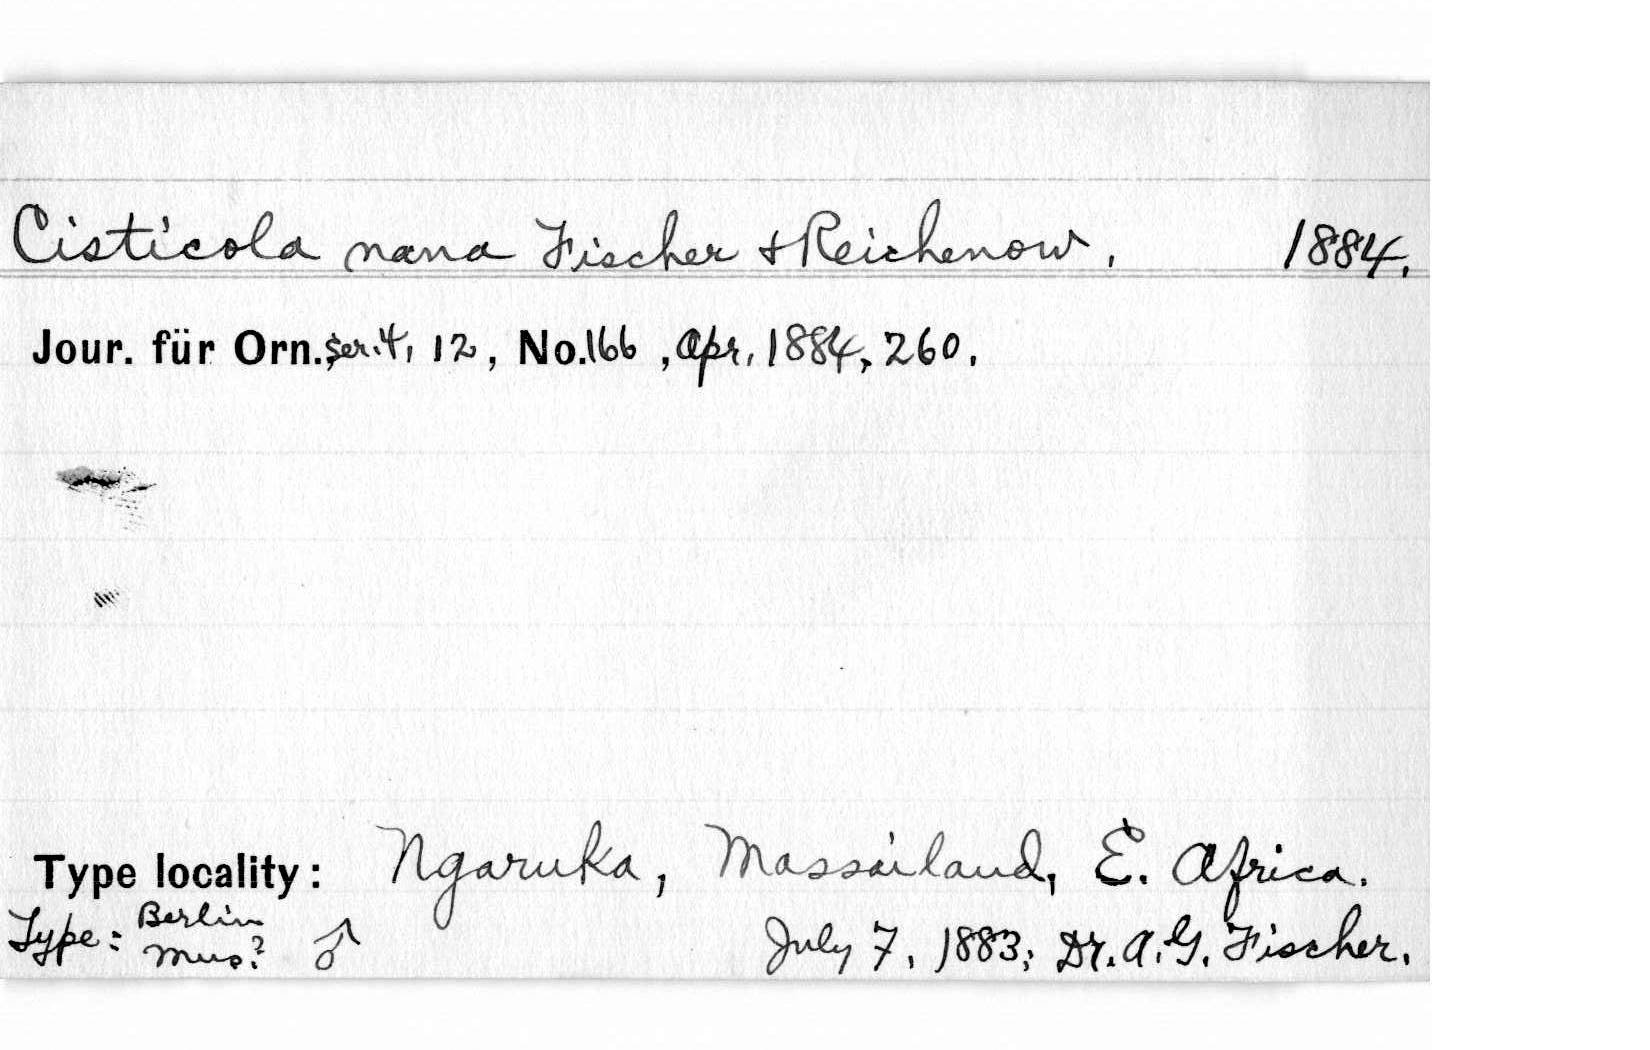 Cisticola nana Fischer & Reichenow. 1884.
Jour. für Orn., ser. 4, 12, No. 166, Apr., 1884, 260.
Type locality: Ngaruka, Massailand, E. Africa.
Type: Berlin Mus? ♂ July 7, 1883; Dr. A. G. Fischer.